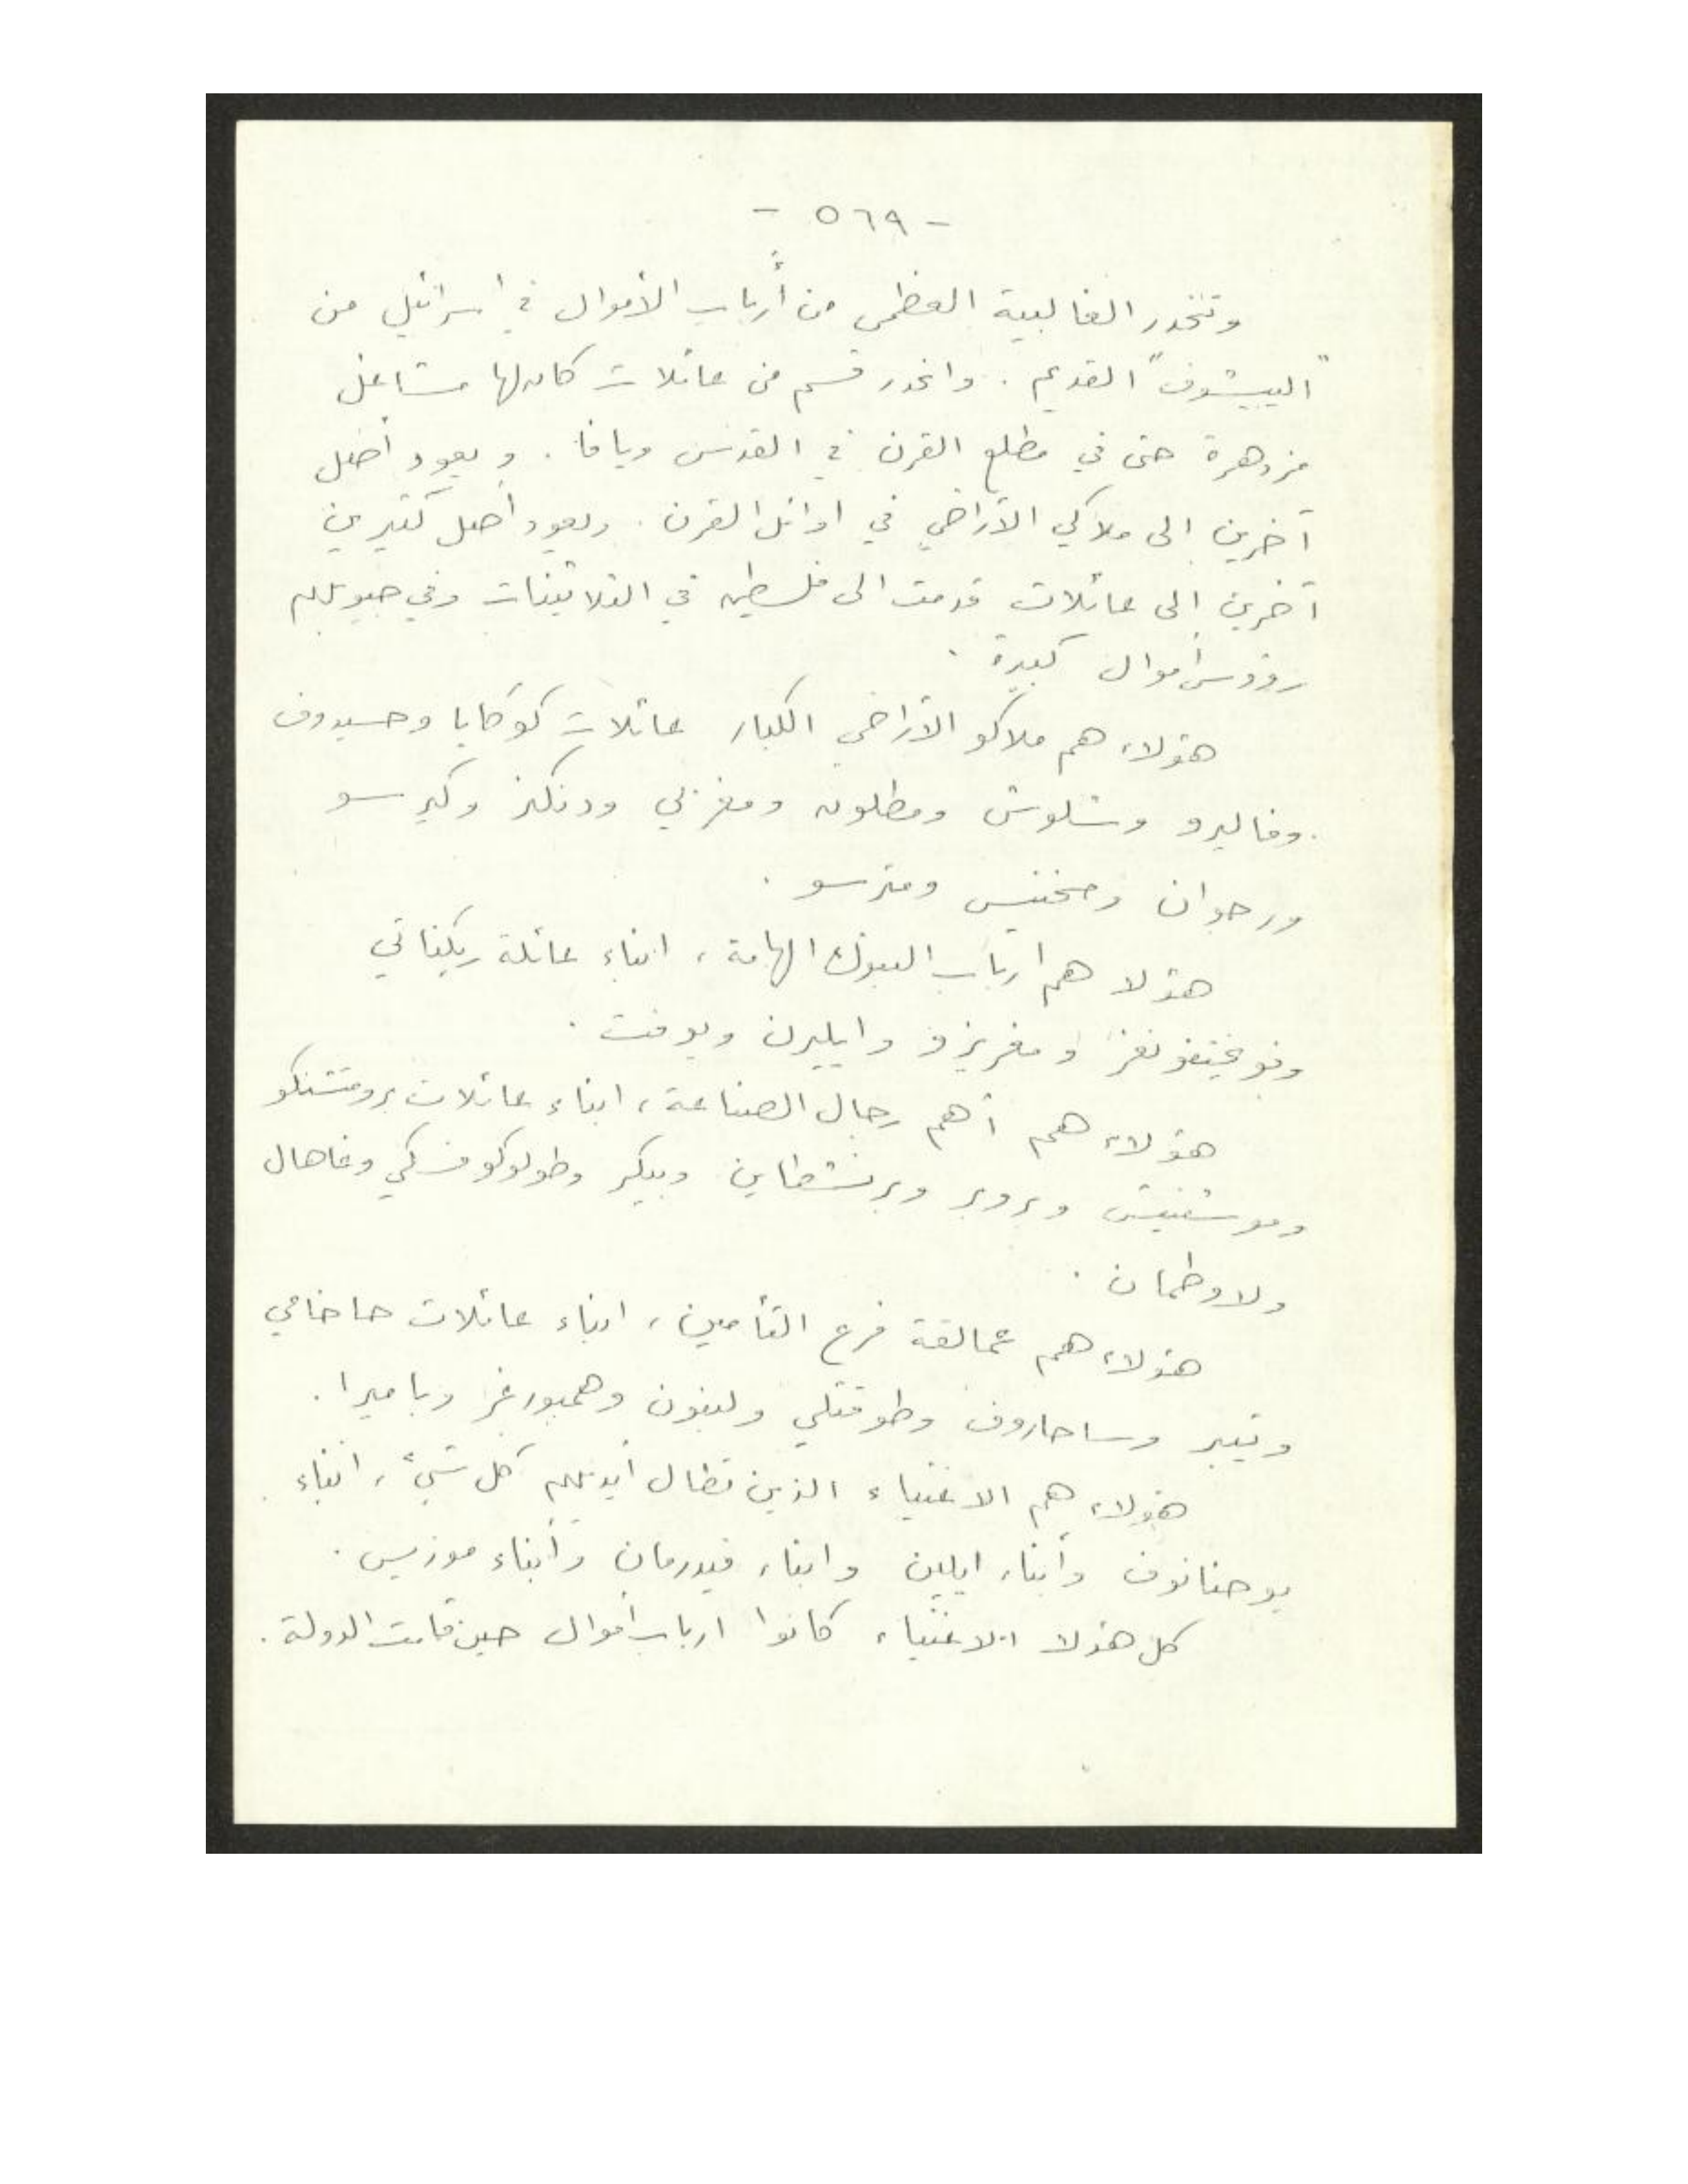 - ٥٦٩ -
وتنحدر الغالبية العظمى من أرباب الأموال في اسرائيل من
"الييشوف" القديم . وانحدر قسم من عائلات كان لها مشاغل
مزدهرة حتى في مطلع القرن في القدس ويافا . ويعود أصل
آخرين الى ملاكي الأراضي في اوائل القرن . ويعود أصل كثيرين
آخرين الى عائلات قدمت الى فلسطين في الثلاثينات وفي جيوبهم
رؤوس أموال كبيرة .
هؤلاء هم ملاكو الأراضي الكبار عائلات كوكايا وحسيدوف
وفاليرو وشلوش ومطلون ومغربي ودنكنر وكيرسو
ورجوان ومترسو .
هؤلا هم ارباب البنوك الهامة ، ابناء عائلة ريكناتي
وفويختفونغر وايليرن ويوفت .
هؤلاء هم أهم رجال الصناعة ، ابناء عائلات برومتشنكو
وموشفيتش وبروبر وبرنشطاين وبيكر وطولوكوفسكي وغاهال
ولاوطمان .
هؤلاء هم عمالقة فرع التأمين ، ابناء عائلات حاخامي
وتيبر وساحاروف وطوقتلي ولينون وهمبورغر وباميرا .
هؤلاء هم الاغنياء الذين تطال أيديهم كل شيء ، ابناء
يوحنانوف وأبناء ايلين وابناء فيدرمان وأبناء موزيس .
كل هؤلا الاغنياء كانوا ارباب أموال حين قامت الدولة .